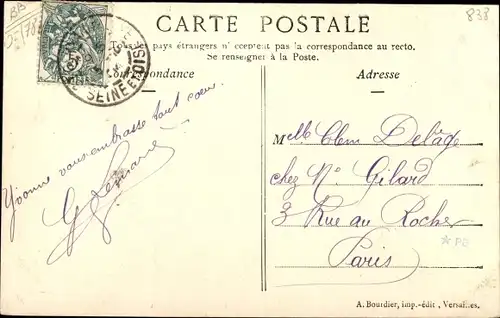 CARTE POSTALE
833
Tous les pays étrangers n'acceptent pas la correspondance au recto.
Se renseigner à la Poste.
Correspondance
Adresse
SEINE ET OISE
Yvonne vous embrasse tout coeur
Melle Clem Delage
chez Mr Gilard
3 Rue au Rocher
Paris
* PE
A. Bourdier, imp.-édit, Versailles.